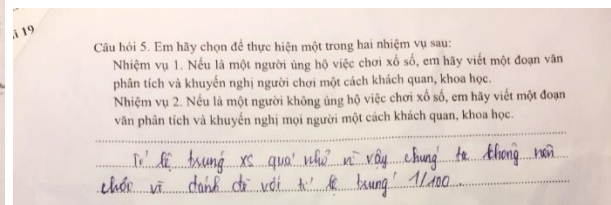 i 19
Câu hỏi 5. Em hãy chọn để thực hiện một trong hai nhiệm vụ sau:
Nhiệm vụ 1. Nếu là một người ủng hộ việc chơi xổ số, em hãy viết một đoạn văn
phân tích và khuyến nghị người chơi một cách khách quan, khoa học.
Nhiệm vụ 2. Nếu là một người không ủng hộ việc chơi xổ số, em hãy viết một đoạn
văn phân tích và khuyến nghị mọi người một cách khách quan, khoa học.
Tỉ lệ trúng xs quá nhỏ vì vậy chúng ta không nên
chơi vì đánh đề với tỉ lệ trúng 1/100